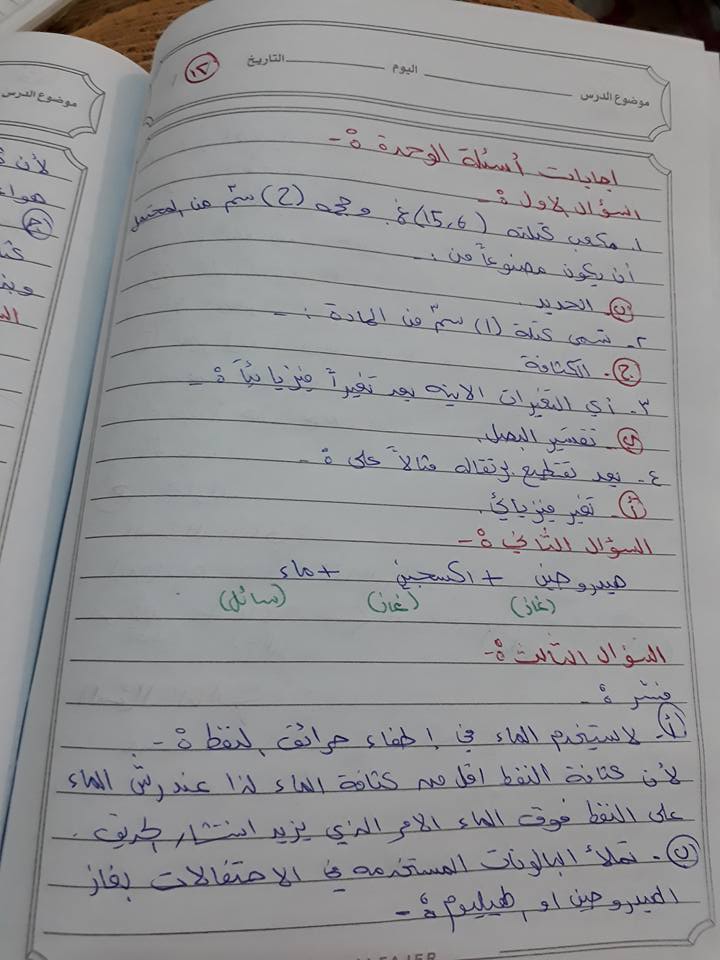 موضوع الدرس ـــــــ اليوم ـــــــ التاريخ ـــــــ
١٢
اجابات أسئلة الوحدة :-
السؤال الاول :-
١. مكعب كتلته (15,6) غ. وحجمه (2) سم٣ من المحتمل
أن يكون مصنوعاً من :-
ب. الحديد.
٢. تسمى كتلة (١) سم٣ من المادة :-
ج. الكثافة
٣. أي التغيرات الاتيه يعد تغيراً فيزيائياً :-
ب. تقشير البصل.
٤. يعد تقطيع برتقاله مثالاً على :-
أ. تغير فيزيائي.
السؤال الثاني :-
هيدروجين + اكسجين + ماء
(غاز) (غاز) (سائل)
السؤال الثالث :-
فسر :-
أ. لاستخدم الماء في اطفاء حرائق النفط :-
لأن كثافة النفط اقل من كثافة الماء لذا عند رش الماء
على النفط فوق الماء الامر الذي يزيد انتشار الحريق.
ب. تملأ البالونات المستخدمه في الاحتفالات بغاز
الهيدروجين او هيليوم :-
موضوع الدرس
لأن
هواء
ج
كتا
وبن
ال